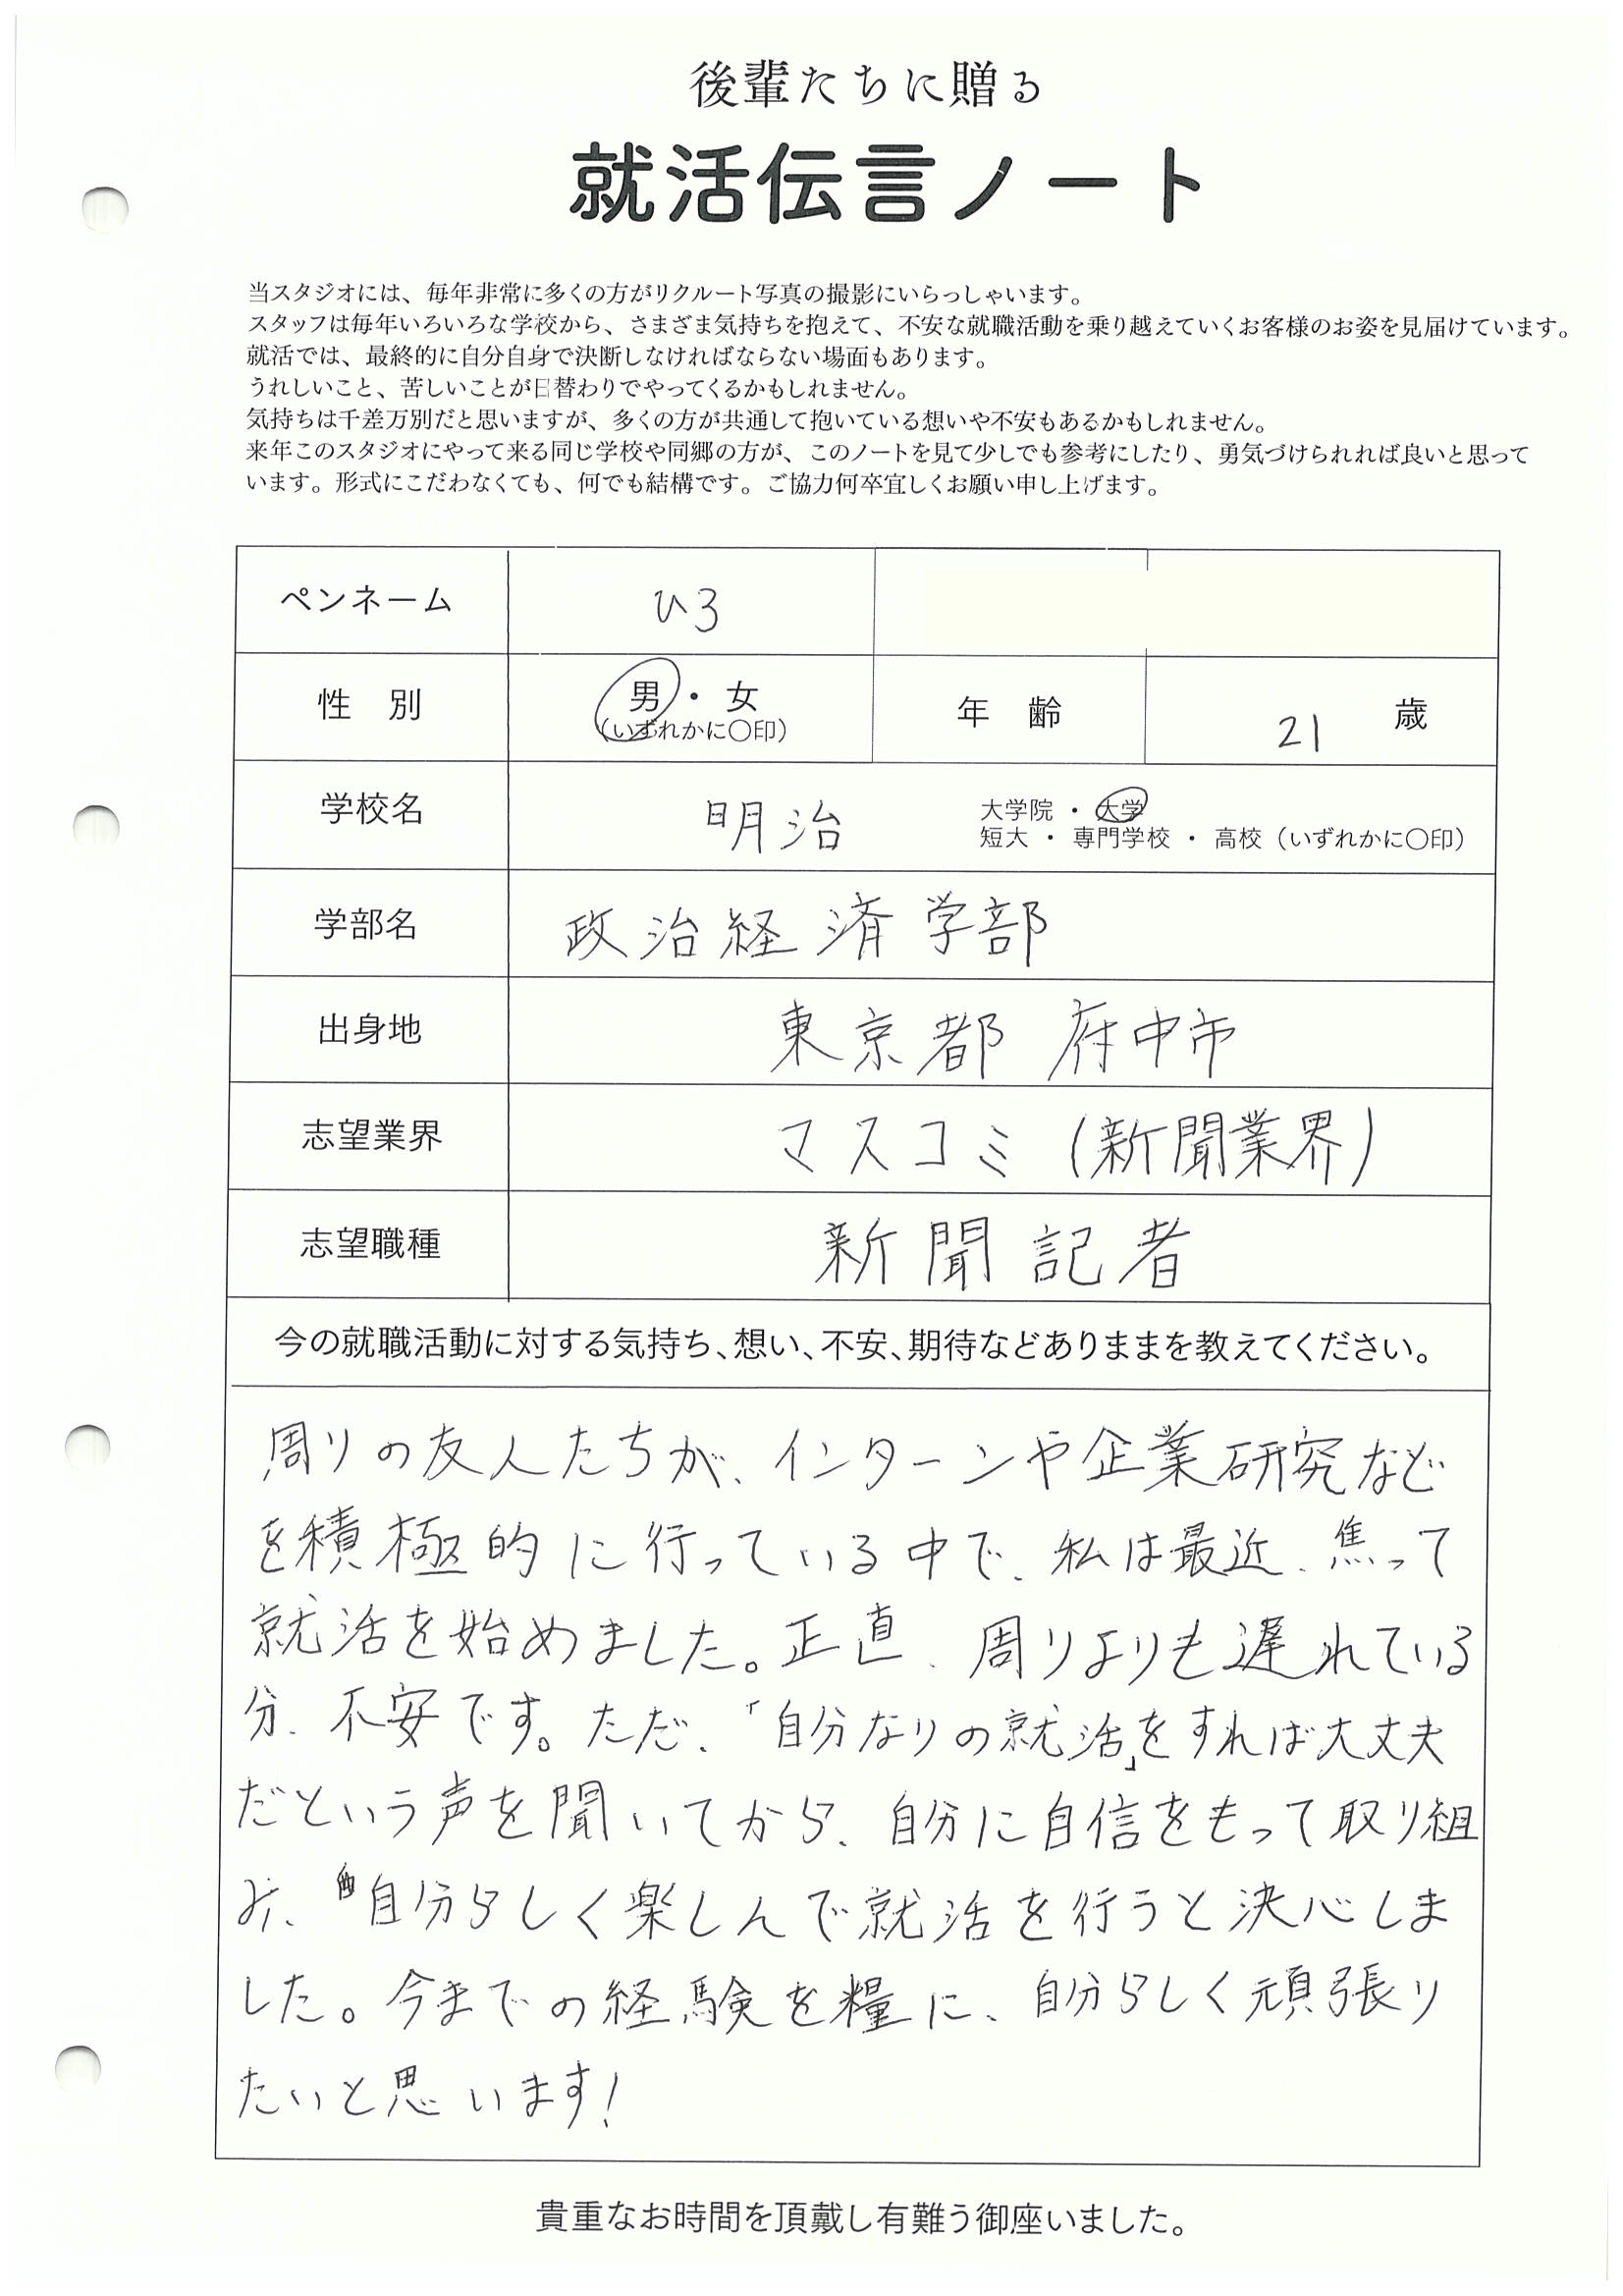 後輩たちに贈る
就活伝言ノート
当スタジオには、毎年非常に多くの方がリクルート写真の撮影にいらっしゃいます。
スタッフは毎年いろいろな学校から、さまざま気持ちを抱えて、不安な就職活動を乗り越えていくお客様のお姿を見届けています。
就活では、最終的に自分自身で決断しなければならない場面もあります。
うれしいこと、苦しいことが日替わりでやってくるかもしれません。
気持ちは千差万別だと思いますが、多くの方が共通して抱いている想いや不安もあるかもしれません。
来年このスタジオにやって来る同じ学校や同郷の方が、このノートを見て少しでも参考にしたり、勇気づけられれば良いと思って
います。形式にこだわなくても、何でも結構です。ご協力何卒宜しくお願い申し上げます。
ペンネーム ひろ
性 別 男・女 (いずれかに〇印) 年 齢 21 歳
学校名 明治 大学院 ・ 大学
短大 ・ 専門学校 ・ 高校 (いずれかに〇印)
学部名 政治経済学部
出身地 東京都 府中市
志望業界 マスコミ (新聞業界)
志望職種 新聞記者
今の就職活動に対する気持ち、想い、不安、期待などありままを教えてください。
周りの友人たちが、インターンや企業研究など
を積極的に行っている中で、私は最近、焦って
就活を始めました。正直、周りよりも遅れている
分、不安です。ただ、「自分なりの就活」をすれば大丈夫
だという声を聞いてから、自分に自信をもって取り組
み、自分らしく楽しんで就活を行うと決心しま
した。今までの経験を糧に、自分らしく頑張り
たいと思います!
貴重なお時間を頂戴し有難う御座いました。